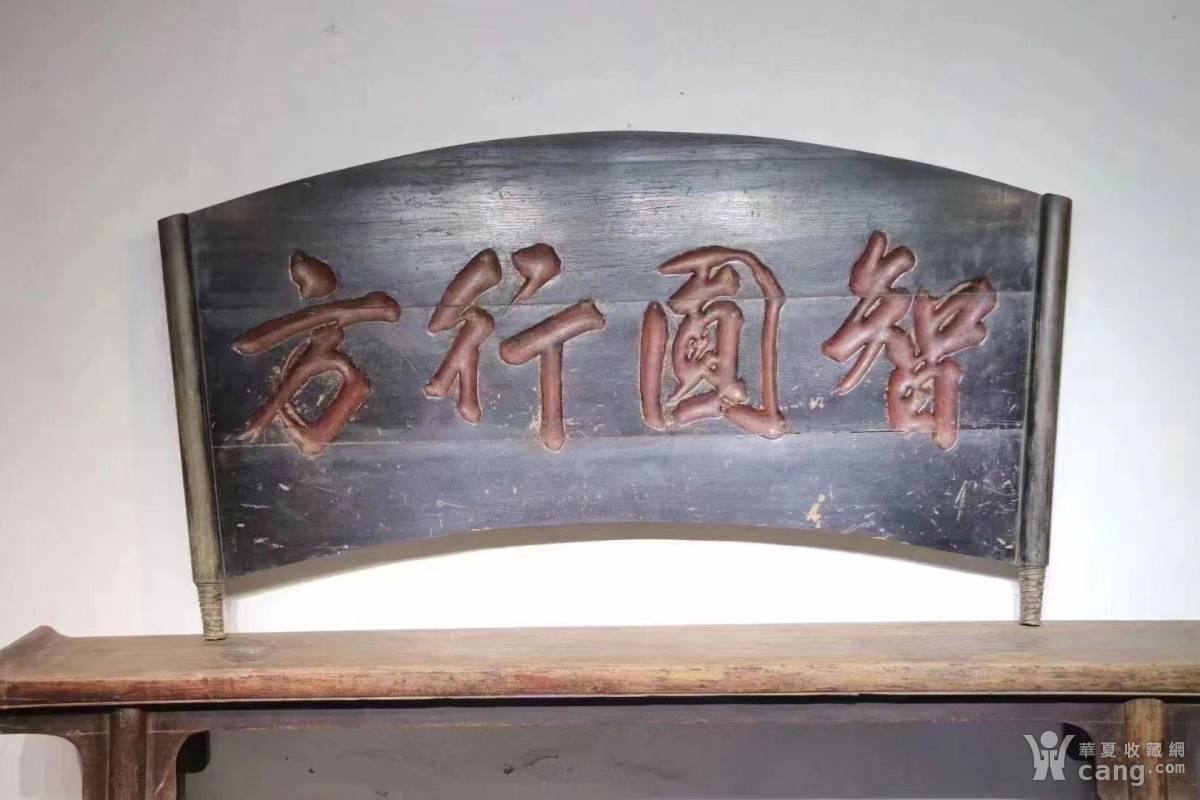 智圓行方
華夏收藏網
cang.com